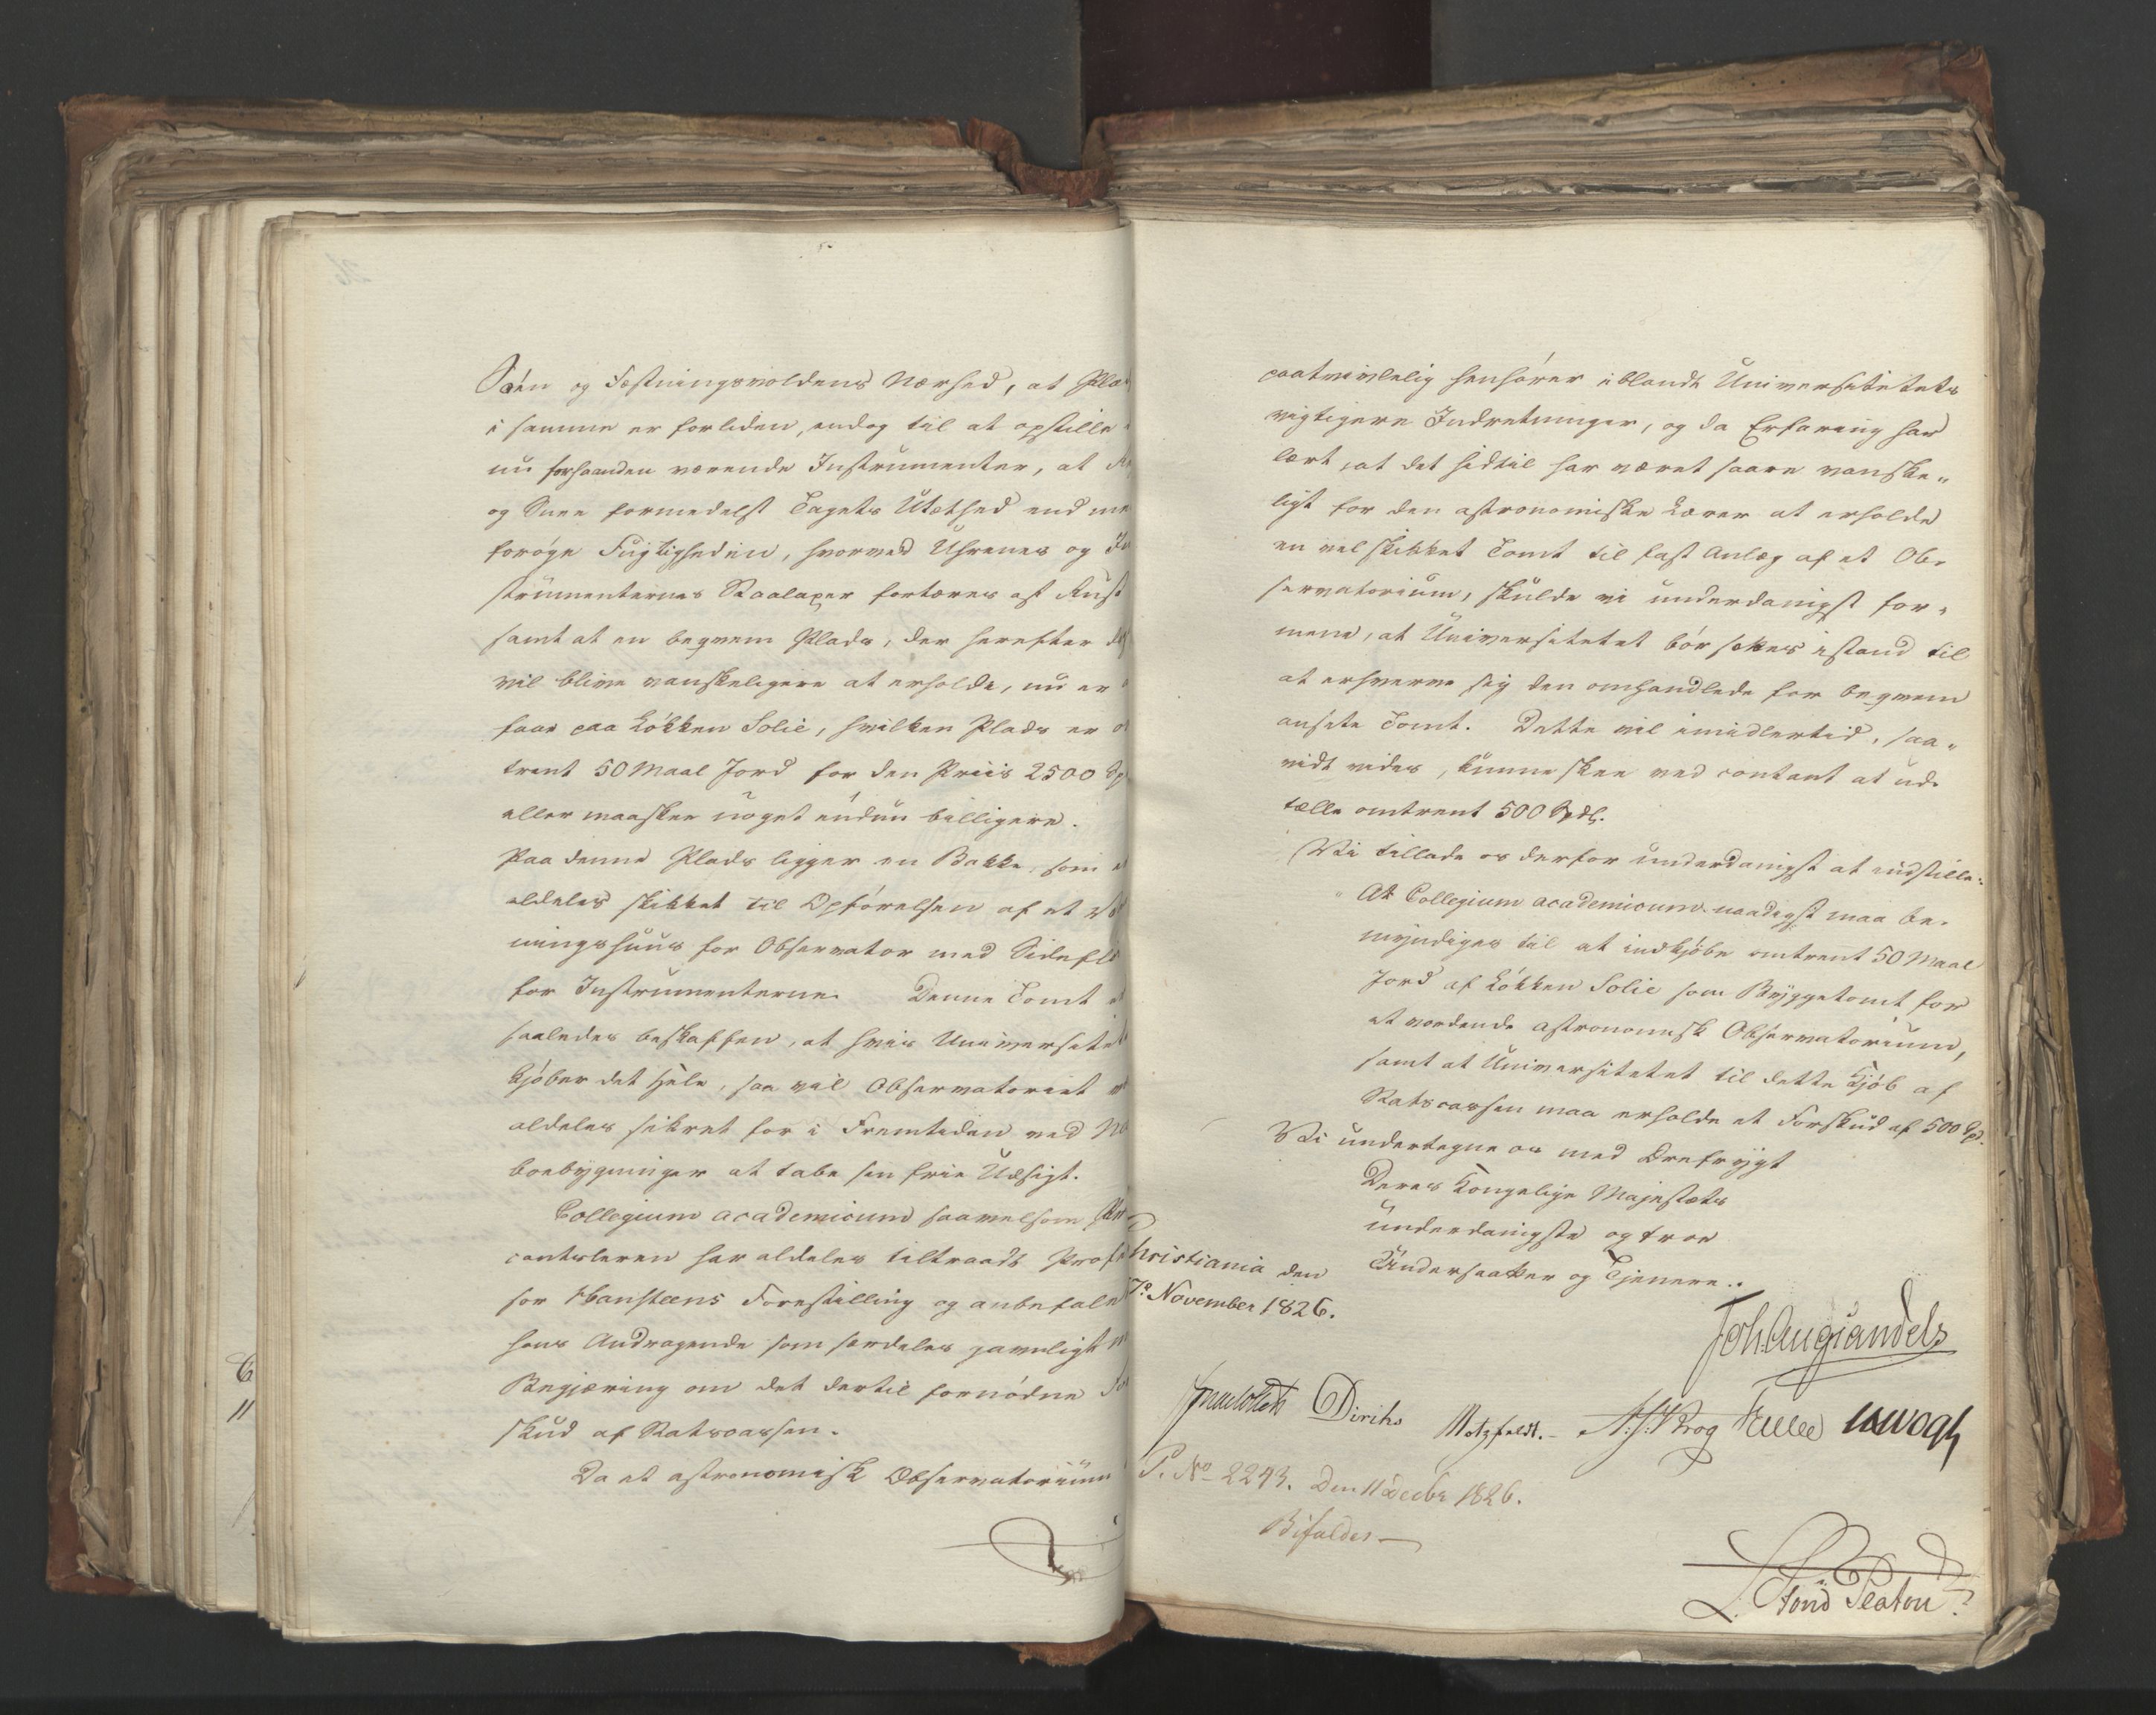 Søen og Fæstningsvoldens Nærhed, at Pla
i samme er forliden, endog til at opstille
nu forhaanden værende Instrumenter, at
og Snee formedelst Tagets Utæthed end me
forøge Fugtigheden, hvorved Uhrenes og In
strumenternes Staalaxer fortæres af Rust
samt at en beqvem Plads, der herefter
vil blive vanskeligere at erholde, nu er
faae paa Løkken Solie, hvilken Plads er
trent 50 Maal Jord for den Priis 2500 Sp
eller maaskee noget endnu billigere.
Paa denne Plads ligger en Bakke, som
aldeles skikket til Opførelsen af et
ningshuus for Observator med Sidefl
for Instrumenterne. Denne Tomt
saaledes beskaffen, at hvis Universitet
kjøber det hele, saa vil Observatoriet
aldeles sikret for i Fremtiden ved Na
boebygninger at tabe sin frie Udsigt.
Collegium academicum saavelsom Pro
cantsleren har aldeles tiltraadt Profes
sor Hansteens Forestilling og anbefale
hans Andragende som særdeles gavnligt
Begjæring om det dertil fornødne For
skud af Statscassen.
Da et astronomisk Observatorium
paatvivlelig henhører iblandt Universitetets
vigtigere Indretninger, og da Erfaring har
lært, at det hidtil har været saare vanske„
ligt for den astronomiske Lærer at erholde
en vel skikket Tomt til fast Anlæg af et Ob„
servatorium, skulde vi underdanigst for„
mene, at Universitetet bør sættes istand til
at erhverve sig den omhandlede for beqvem
ansete Tomt. Dette vil imidlertid, saa„
vidt vides, kunne skee ved contant at ud„
tælle omtrent 500 Spdl.
Vi tillade os derfor underdanigst at indstille:
At Collegium academicum naadigst maa be„
myndiges til at indkjøbe omtrent 50 Maal
Jord af Løkken Solie som Byggetomt for
et vordende astronomisk Observatorium,
samt at Universitetet til dette Kjøb af
Statscassen maa erholde et Forskud af 500 Spd.
Vi undertegne os med Ærefrygt
Deres Kongelige Majestæts
underdanigste og troe
Christiania den Undersaatter og Tjenere.
7de November 1826.
Joh Aug Sandels
Diriks Motzfeldt. A. J. Krog Treschow
P. No 2243. Den 11 Decbr 1826.
Bifaldes